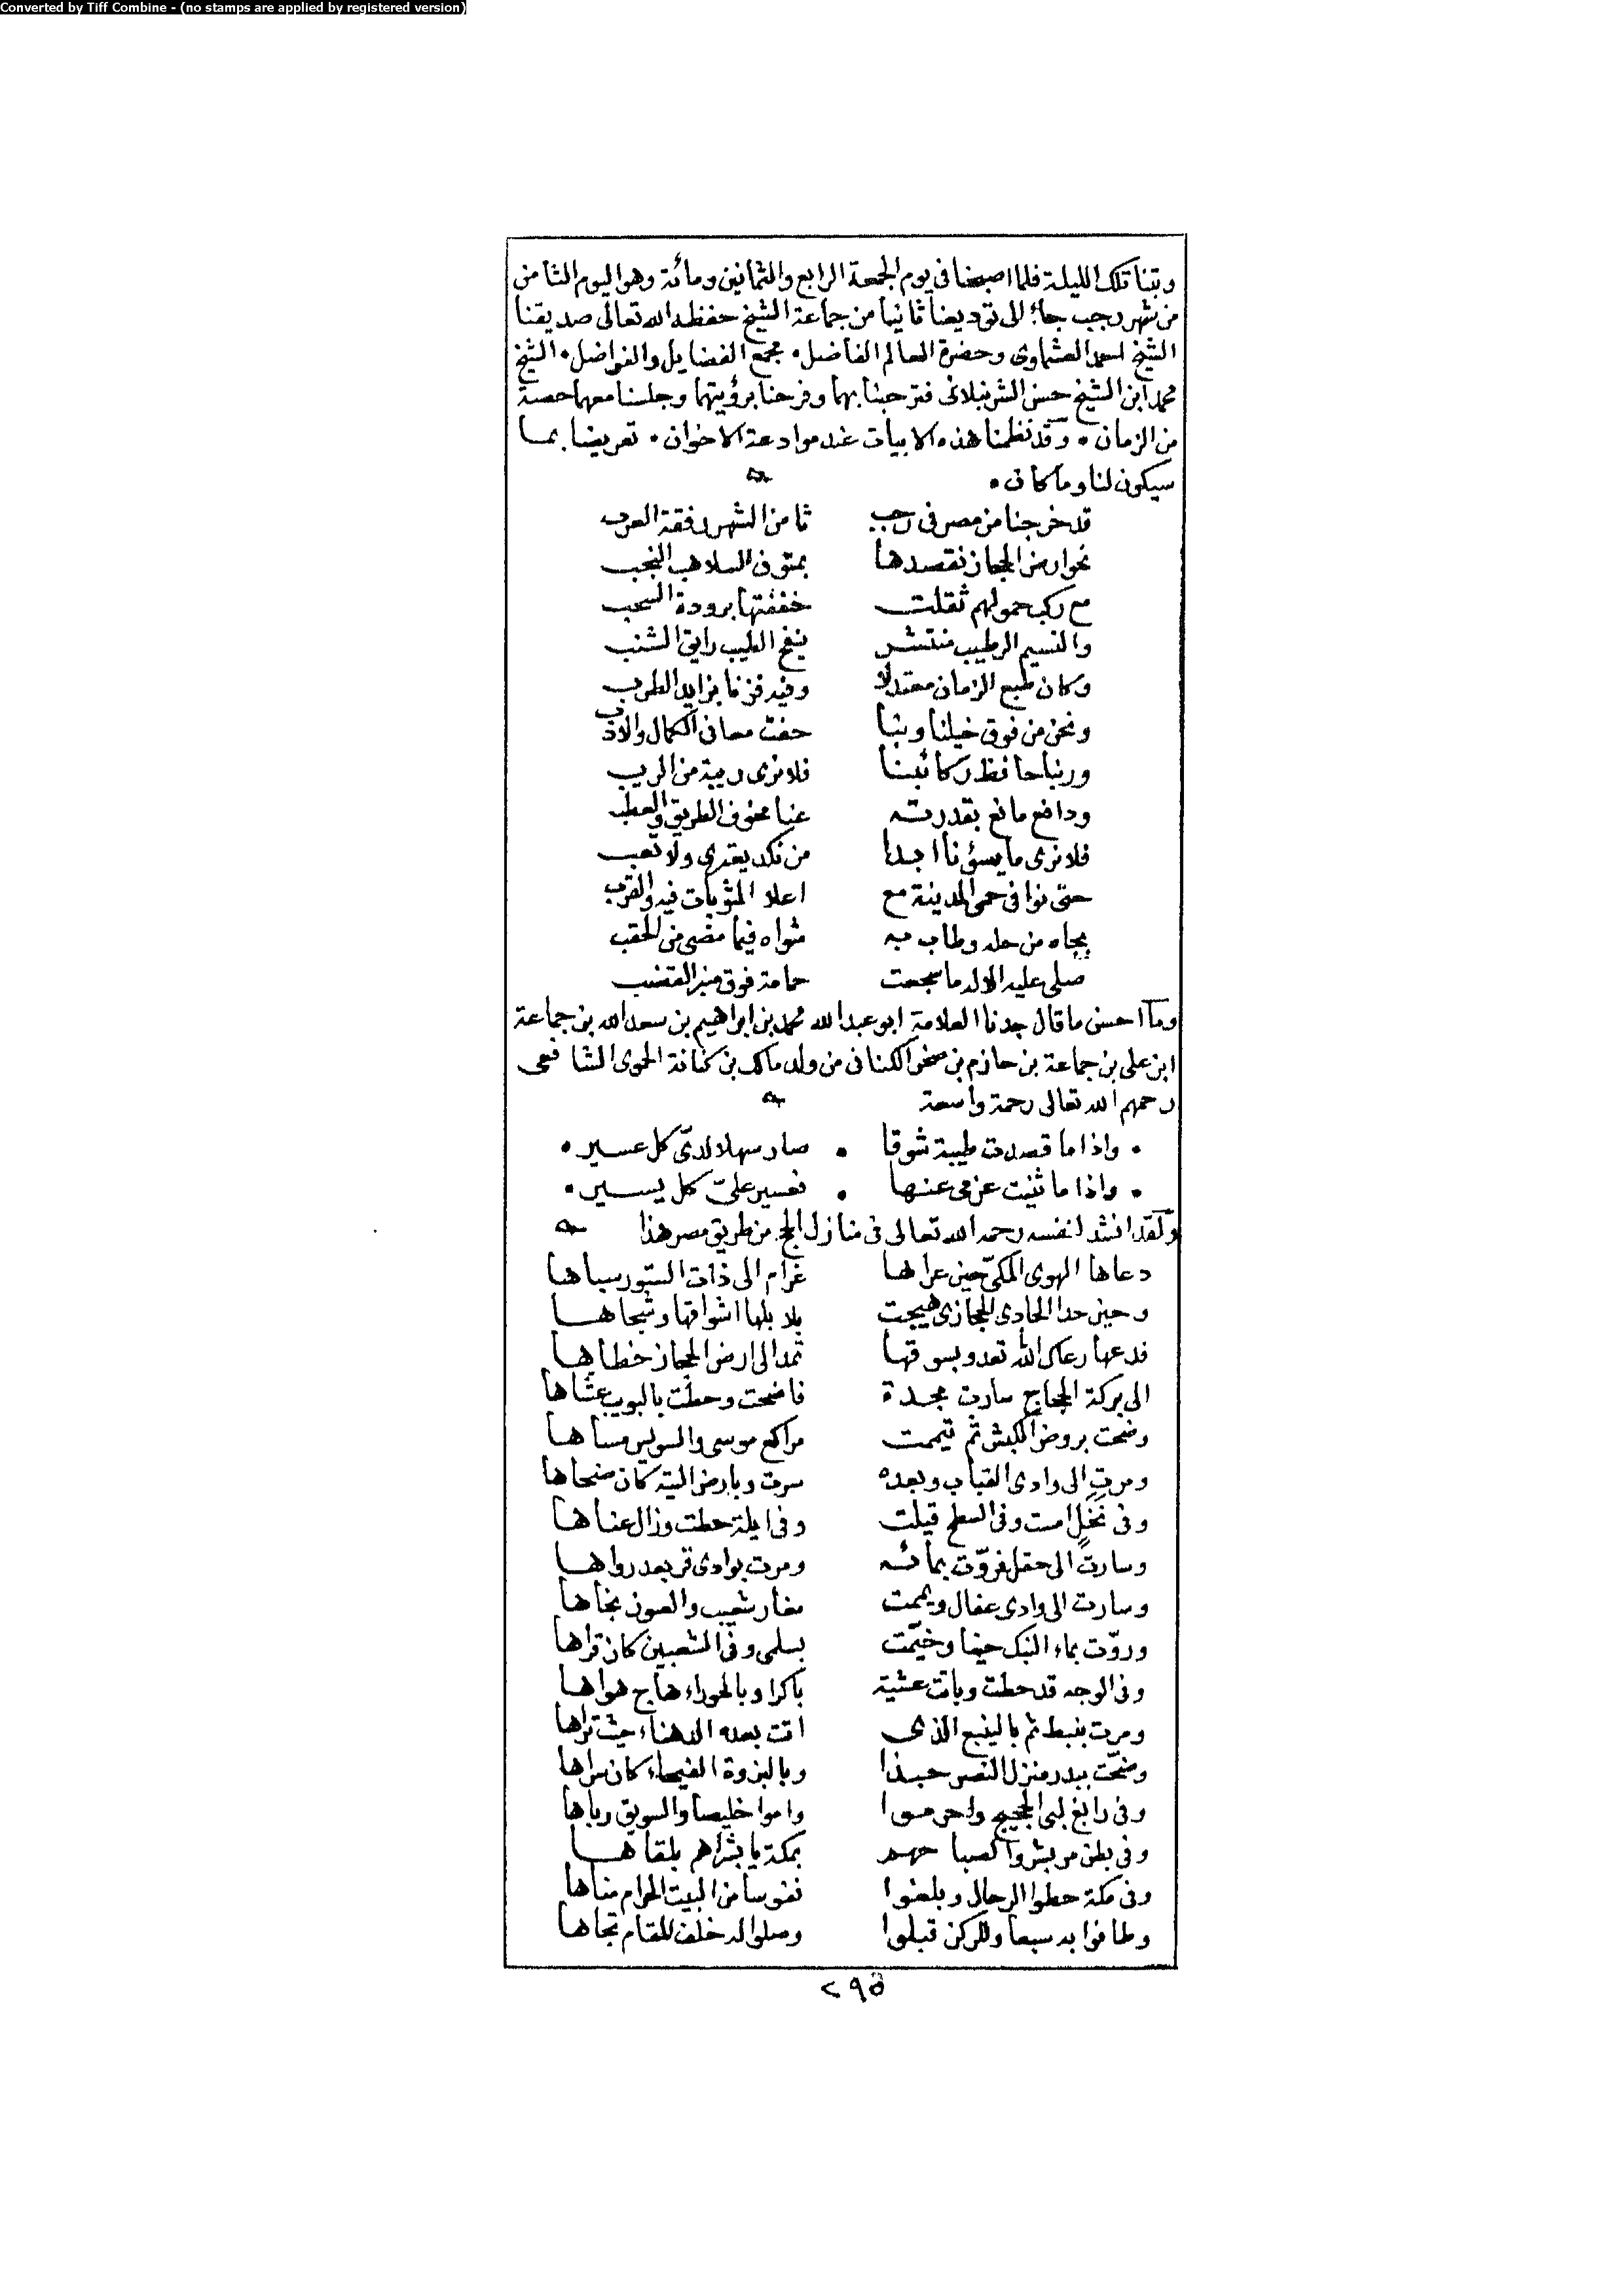 Converted by Tiff Combine - (no stamps are applied by registered version)
وبتنا تلك الليلة فلما اصبحنا فى يوم الجمعة الرابع والثمانين ومائة وهو اليوم الثامن
من شهر رجب جاء الى توديعنا ثانيا من جماعة الشيخ حفظه الله تعالى صديقنا
الشيخ احمد العشماوى وحضرة العالم الفاضل • مجمع الفضايل والفواضل • الشيخ
محمد ابن الشيخ حسن الشرنبلالى فترحبنا بهما وفرحنا برؤيتهما وجلسنا معهما حصة
من الزمان • وقد نظمنا هذه الابيات عند موادعة الاخوان • تعريضا بما
سيكون لنا وما كان •
قد خرجنا من مصر فى رجب ثامن الشهر رفقة العرب
نحو ارض الحجاز نقصدها بمتون السلاهب النجب
مع ركب حمولهم ثقلت خففتها برودة السحب
والنسيم الرطيب منتشر ينفح الطيب رايق الشنب
وكان طبع الزمان معتدلا وفيه فزنا بزايد الطرب
ونحن من فوق خيلنا وبنا حفت معانى الكمال والادب
وربنا حافظ ركائبنا فلا نرى ريبة من الريب
ودافع مانع بقدرته عنا مخوف الطريق والعطب
فلا نرى ما يسؤنا ابدا من نكد يعترى ولا تعب
حتى نوافى حمى المدينة مع اعلا المثوبات فيه والقرب
بجاه من حله وطاب به مثواه فيما مضى من الحقب
صلى عليه الاله ما سجعت حمامة فوق منبر القضب
وما احسن ما قال جدنا العلامة ابو عبد الله محمد بن ابراهيم بن سعد الله بن جماعة
ابن على بن جماعة بن حازم بن صخر الكنانى من ولد مالك بن كنانة الحموى الشافعى
رحمهم الله تعالى رحمة واسعة
• واذا ما قصدت طيبة شوقا • صار سهلا لدىّ كل عسير •
• واذا ما ثنيت عزمى عنها • فعسير علىّ كل يسير •
ولقد انشد لنفسه رحمه الله تعالى فى منازل الحج من طريق مصر هذا
دعاها الهوى المكىّ حين عراها غرام الى ذات الستور سباها
وحين حدا الحادى الحجازى هيجت بلابلها اشواقها وشجاها
فدعها رعاك الله تعدو بسوقها تمد الى ارض الحجاز خطاها
الى بركة الحجاج سارت مجدة فاضحت وحطت بالبويب عشاها
وضحت بروض الكبش ثم تيممت مراكع موسى والسويس مساها
ومرت الى وادى القباب وبعده سرت وبارض التيه كان ضحاها
وفى نخل امست وفى السطح قيلت وفى ايلة حطت وزال عناها
وسارت الى حقل فروّت بمائه ومرت بوادى قر بعد رواها
وسارت الى وادى عفال ويممت مغار شعيب والعيون نجاها
وروّت بماء النبك حينا وخيّمت بسلمى وفى الشعبين كان قراها
وفى الوجه قد حطت وباتت عشية باكرا وبالحوراء هاج هواها
ومرت بنبط ثم بالينبع الذى اتت بعده الدهناء حيث تراها
وضحّت ببدر منزل النصر حبذا وبالبزوة الفيحاء كان سراها
وفى رابغ لبى الحجيج واحرموا واموا خليصا والسويق رباها
وفى بطن مر بشروا بمكة يا بشراهم بلقاها
وفى مكة حطوا الرحال وبلغوا نفوسا من البيت الحرام مناها
وطافوا به سبعا وللركن قبلوا وصلوا لد خلف المقام تجاها
٢٩٥